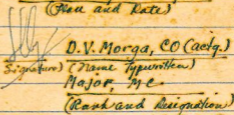 (Place and Date)
D.V. Morga, CO (actg.)
Signature) (Name Typewritten)
Major, MC
(Rank and Designation)